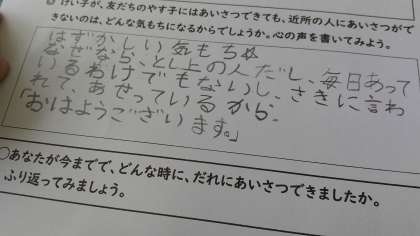 けい子が、友だちのやす子にはあいさつできても、近所の人にあいさつがで
きないのは、どんな気もちになるからでしょうか。心の声を書いてみよう。
はずかしい気もち
なぜなら、とし上の人だし、毎日あって
いるわけでもないし、さきに言わ
れて、あせっているから。
「おはようございます。」
○あなたが今までで、どんな時に、だれにあいさつできましたか。
ふり返ってみましょう。